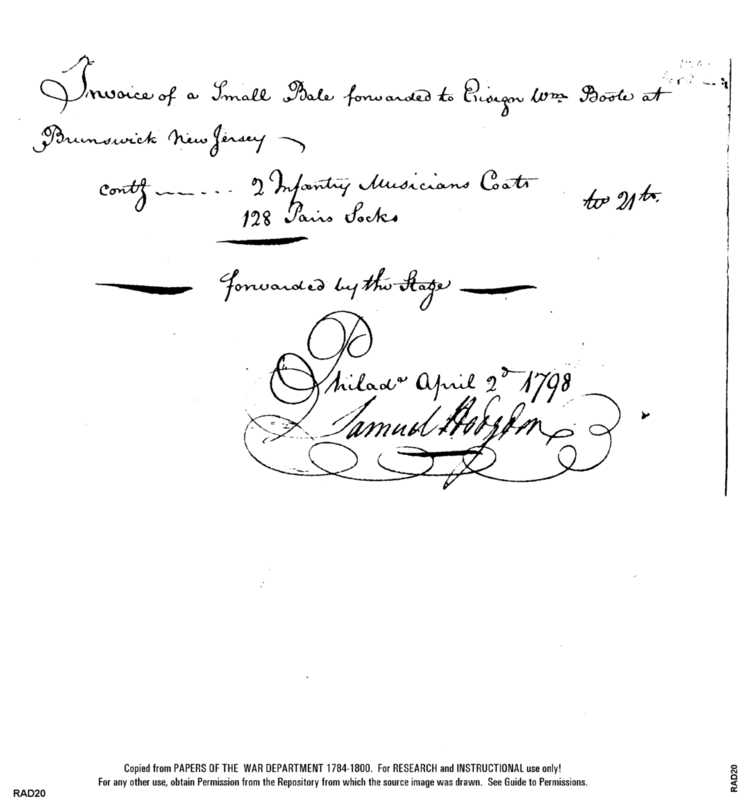 Invoice of a Small Bale forwarded to Ensign Wm Boote at
Brunswick New Jersey
contg 2 Infantry Musicians Coats
128 Pairs Socks
wt 21 lb.
forwarded by the Stage
Philada April 2d 1798
Samuel Hodgdon
Copied from PAPERS OF THE WAR DEPARTMENT 1784-1800. For RESEARCH and INSTRUCTIONAL use only!
For any other use, obtain Permission from the Repository from which the source image was drawn. See Guide to Permissions.
RAD20
RAD20